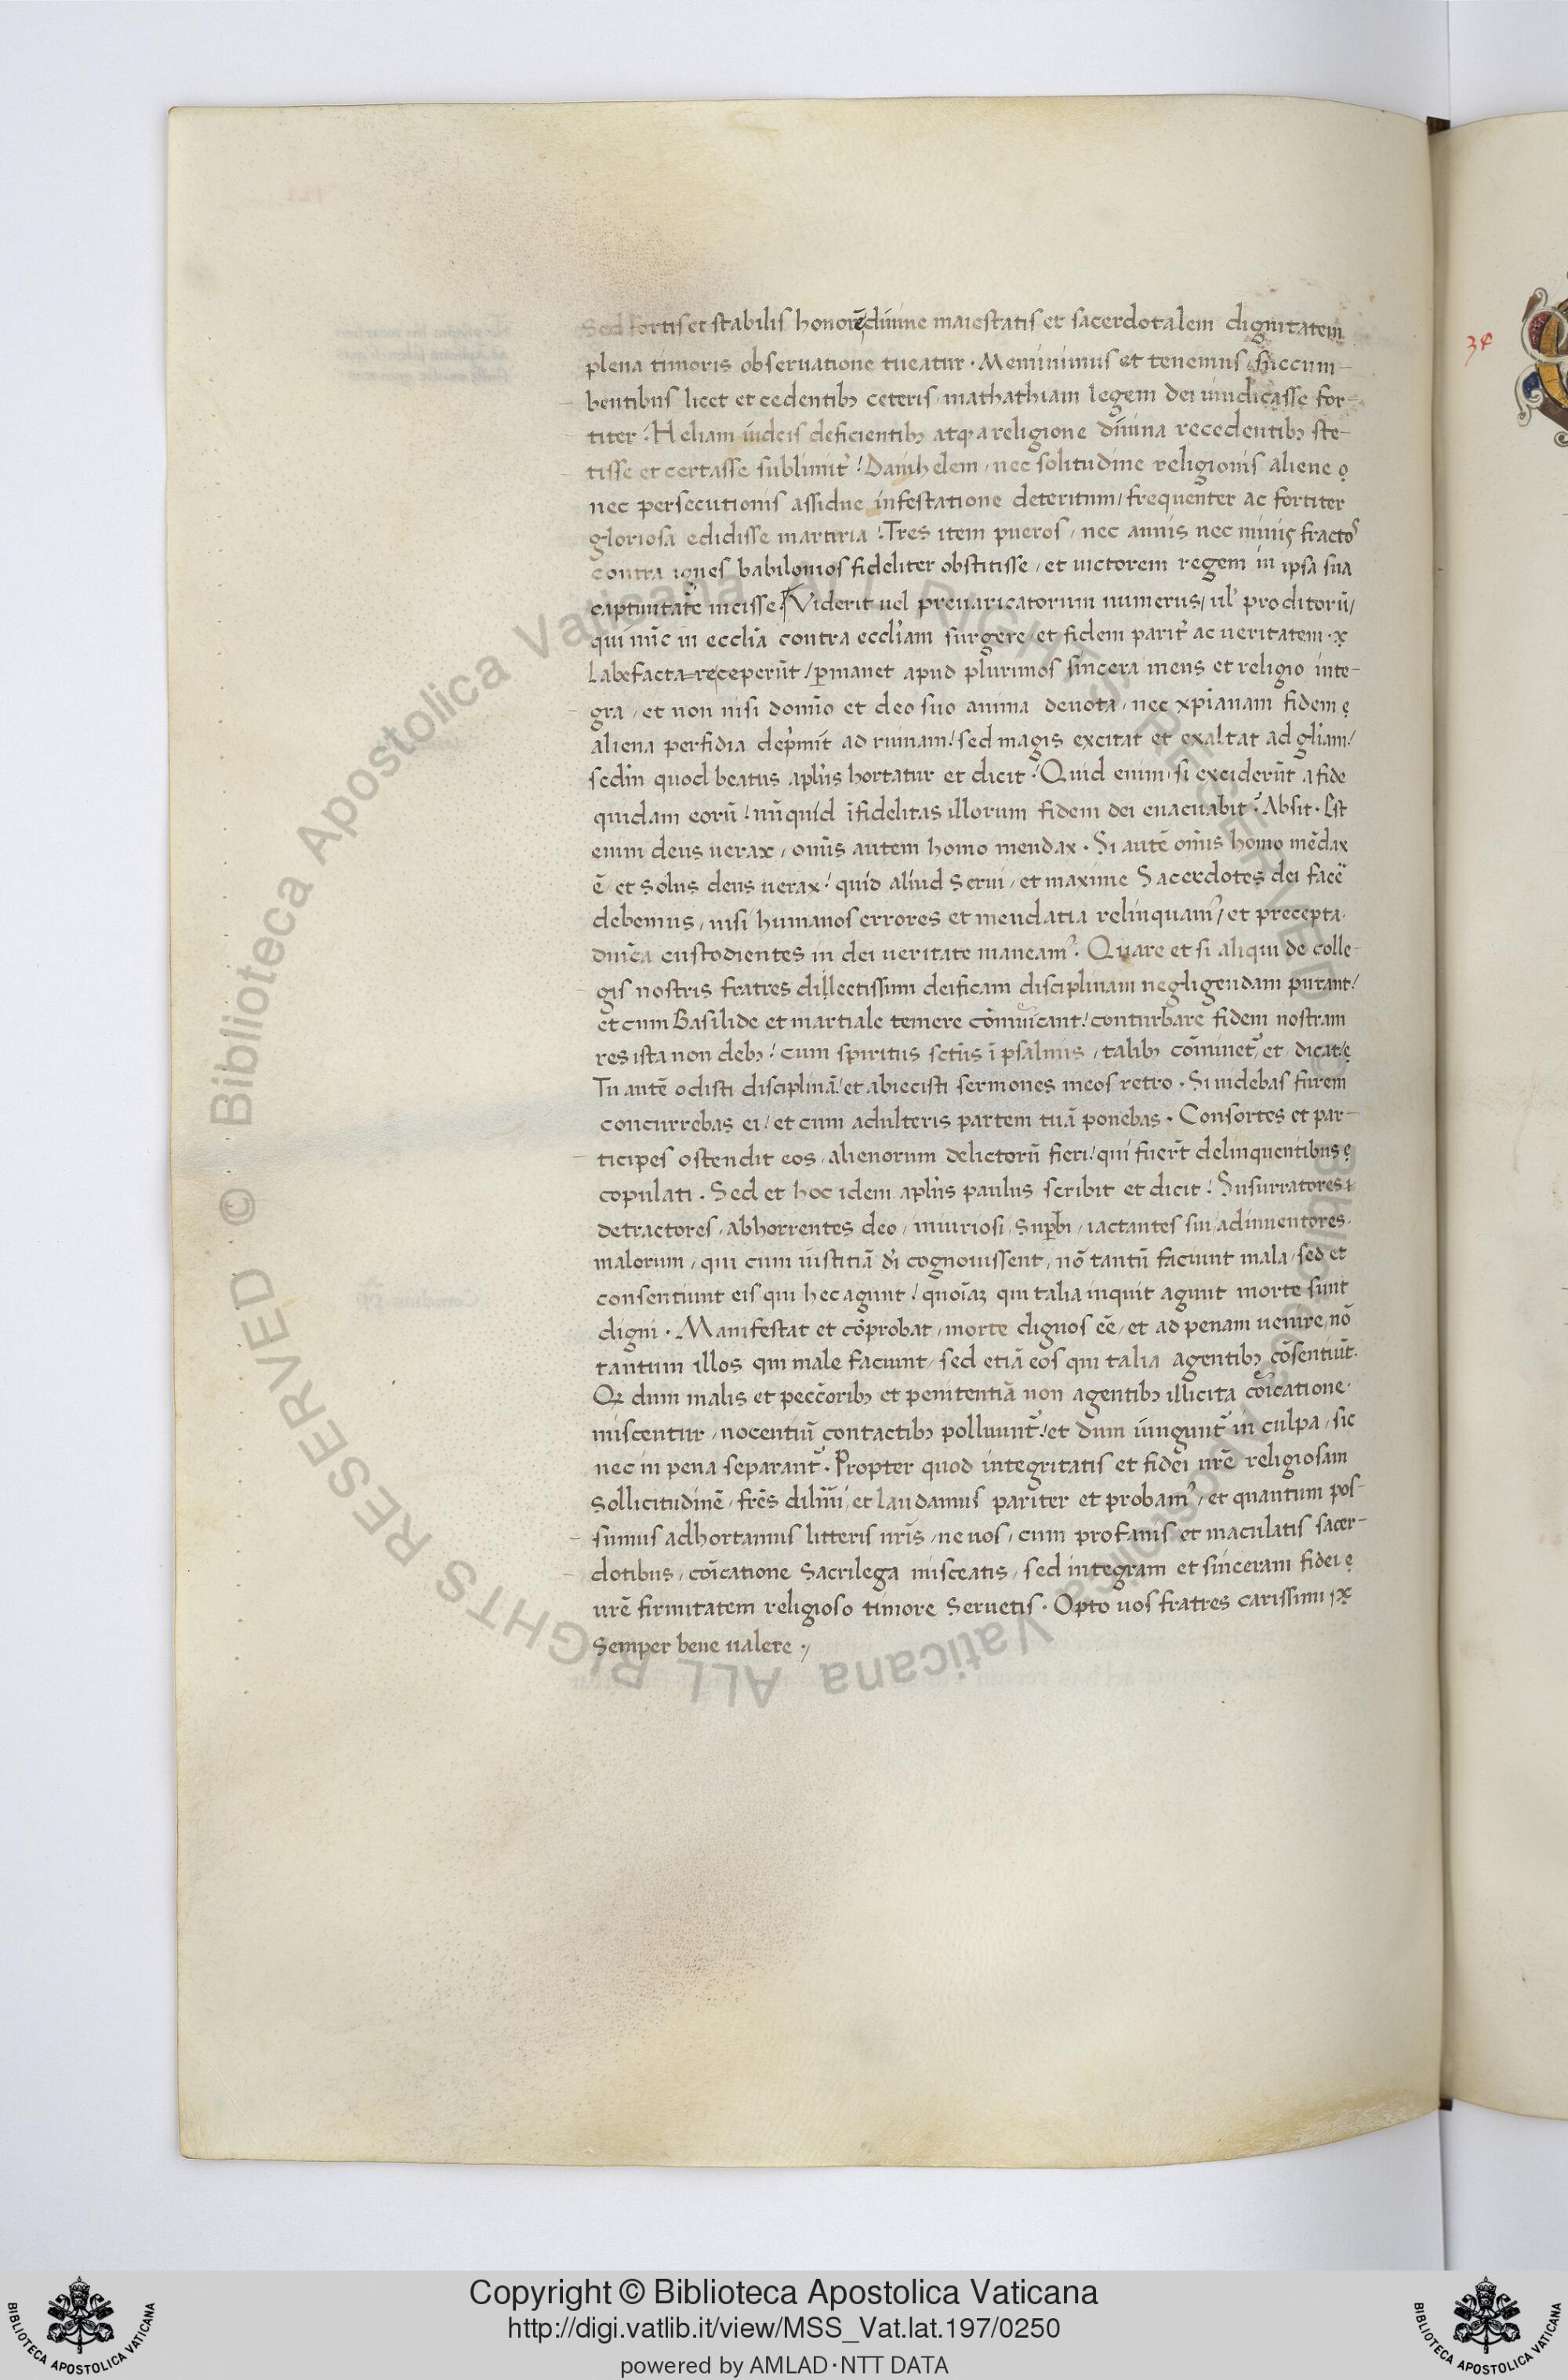 Sed fortis et stabilis honorē diuine maiestatis et sacerdotalem dignitatem
plena timoris obseruatione tueatur · Meminimus et tenemus / succum-
bentibus licet et cedentibꝫ ceteris / mathathiam legem dei uindicasse for-
titer : Heliam iudeis deficientibꝫ atqꝫ a religione diuina recedentibꝫ ste-
tisse et certasse sublimit̃ : Danihelem / nec solitudine religionis aliene
nec persecutionis assidue infestatione deteritum / frequenter ac fortiter
gloriosa edidisse martiria : Tres item pueros / nec annis nec minis fracto⁹
contra ignes babilonios fideliter obstitisse / et uictorem regem in ipsa sua
captiuitate uicisse . Viderit uel preuaricatorum numerus / ul' proditorū /
qui nūc in eccl'ia contra eccl'iam surgere / et fidem parit̃ ac ueritatem · x
labefacta=receperūt / ꝑmanet apud plurimos sincera mens et religio inte-
gra / et non nisi domīo et deo suo anima deuota / nec xp̄ianam fidem
aliena perfidia dep̄mit ad ruinam : sed magis excitat et exaltat ad gl'iam :
sedm̄ quod beatus apl'us hortatur et dicit : Quid enim / si exciderūt a fide
quidam eorū : nūquid īfidelitas illorum fidem dei euacuabit ? Absit · Est
enim deus uerax / om̄is autem homo mendax · Si autē om̄is homo mēdax
ē / et solus deus uerax : quid aliud serui / et maxime Sacerdotes dei facē
debemus / nisi humanos errores et mendatia relinquam⁹ / et precepta
dn̄ica custodientes in dei ueritate maneam⁹ · Quare et si aliqui de colle-
gis nostris fratres dillectissimi deificam disciplinam negligendam putant :
et cum Basilide et martiale temere cōmuicant : conturbare fidem nostram
res ista non debꝫ : cum spiritus sctūs ī psalmis / talibꝫ cōminet̃ / et dicat
Tu autē odisti disciplinā : et abiecisti sermones meos retro · Si uidebas furem
concurrebas ei : et cum adulteris partem tuā ponebas · Consortes et par-
ticipes ostendit eos / alienorum delictorū fieri : qui fuer̄t delinquentibus
copulati · Sed et hoc idem apl'us paulus scribit et dicit : Susurratores
detractores / abhorrentes deo / iniuriosi / Suꝑbi / iactantes sui / adinuentores
malorum / qui cum iustitiā dī cognouissent / nō tantū faciunt mala / sed et
consentiunt eis qui hec agunt : quoīaꝫ qui talia inquit agunt morte sunt
digni · Manifestat et cōprobat / morte dignos eē / et ad penam uenire / nō
tantum illos qui male faciunt / sed etiā eos qui talia agentibꝫ cōsentiūt ·
Qꝫ dum malis et pecc̄oribꝫ et penitentiā non agentibꝫ illicita cōicatione
miscentur / nocentiū contactibꝫ polluunt̃ : et dum iungunt̃ in culpa / sic
nec in pena separant̃ · Propter quod integritatis et fidei ur̄e religiosam
sollicitudinē / fr̄es dil̄mi / et laudamus pariter et probam⁹ / et quantum pos-
sumus adhortamus litteris nr̄is / ne uos / cum profanis et maculatis sacer-
dotibus / cōicatione Sacrilega misceatis / sed integram et sinceram fidei
ur̄e firmitatem religioso timore Seruetis · Opto uos fratres carissimi / x
Semper bene ualere ·/
34
© Biblioteca Apostolica Vaticana ALL RIGHTS RESERVED © Biblioteca Apostolica Vaticana ALL RIGHTS RESERVED
Copyright © Biblioteca Apostolica Vaticana
http://digi.vatlib.it/view/MSS_Vat.lat.197/0250
powered by AMLAD·NTT DATA
BIBLIOTECA APOSTOLICA VATICANA
BIBLIOTECA APOSTOLICA VATICANA